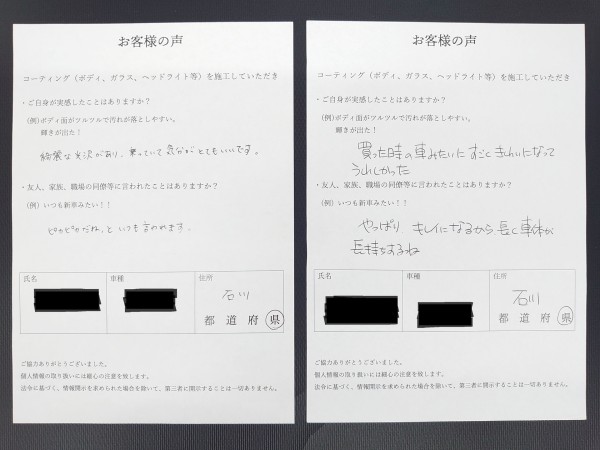 お客様の声
コーティング（ボディ、ガラス、ヘッドライト等）を施工していただき
・ご自身が実感したことはありますか？
(例)ボディ面がツルツルで汚れが落としやすい。
輝きが出た！
綺麗な光沢があり、乗っていて気分がとてもいいです。
・友人、家族、職場の同僚等に言われたことはありますか？
(例) いつも新車みたい！！
ピカピカだね、といつも言われます。
氏名
車種
住所
石川
都 道 府 県
ご協力ありがとうございました。
個人情報の取り扱いには細心の注意を致します。
法令に基づく、情報開示を求められた場合を除いて、第三者に開示することは一切ありません。
お客様の声
コーティング（ボディ、ガラス、ヘッドライト等）を施工していただき
・ご自身が実感したことはありますか？
(例)ボディ面がツルツルで汚れが落としやすい。
輝きが出た！
買った時の車みたいにすごくきれいになって
うれしかった
・友人、家族、職場の同僚等に言われたことはありますか？
(例) いつも新車みたい！！
やっぱり キレイになるから長く車体が
長持ちするね
氏名
車種
住所
石川
都 道 府 県
ご協力ありがとうございました。
個人情報の取り扱いには細心の注意を致します。
法令に基づく、情報開示を求められた場合を除いて、第三者に開示することは一切ありません。